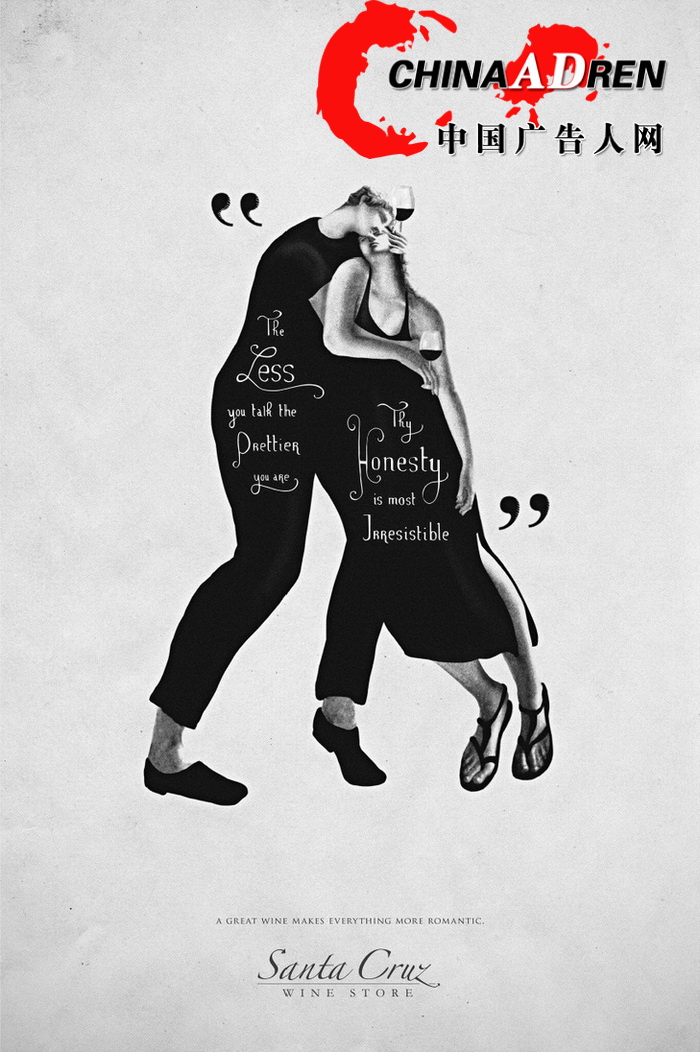 CHINAADREN
中国广告人网
“
The
Less
you talk the
Prettier
you are
Thy
Honesty
is most
Irresistible
”
A GREAT WINE MAKES EVERYTHING MORE ROMANTIC.
Santa Cruz
WINE STORE